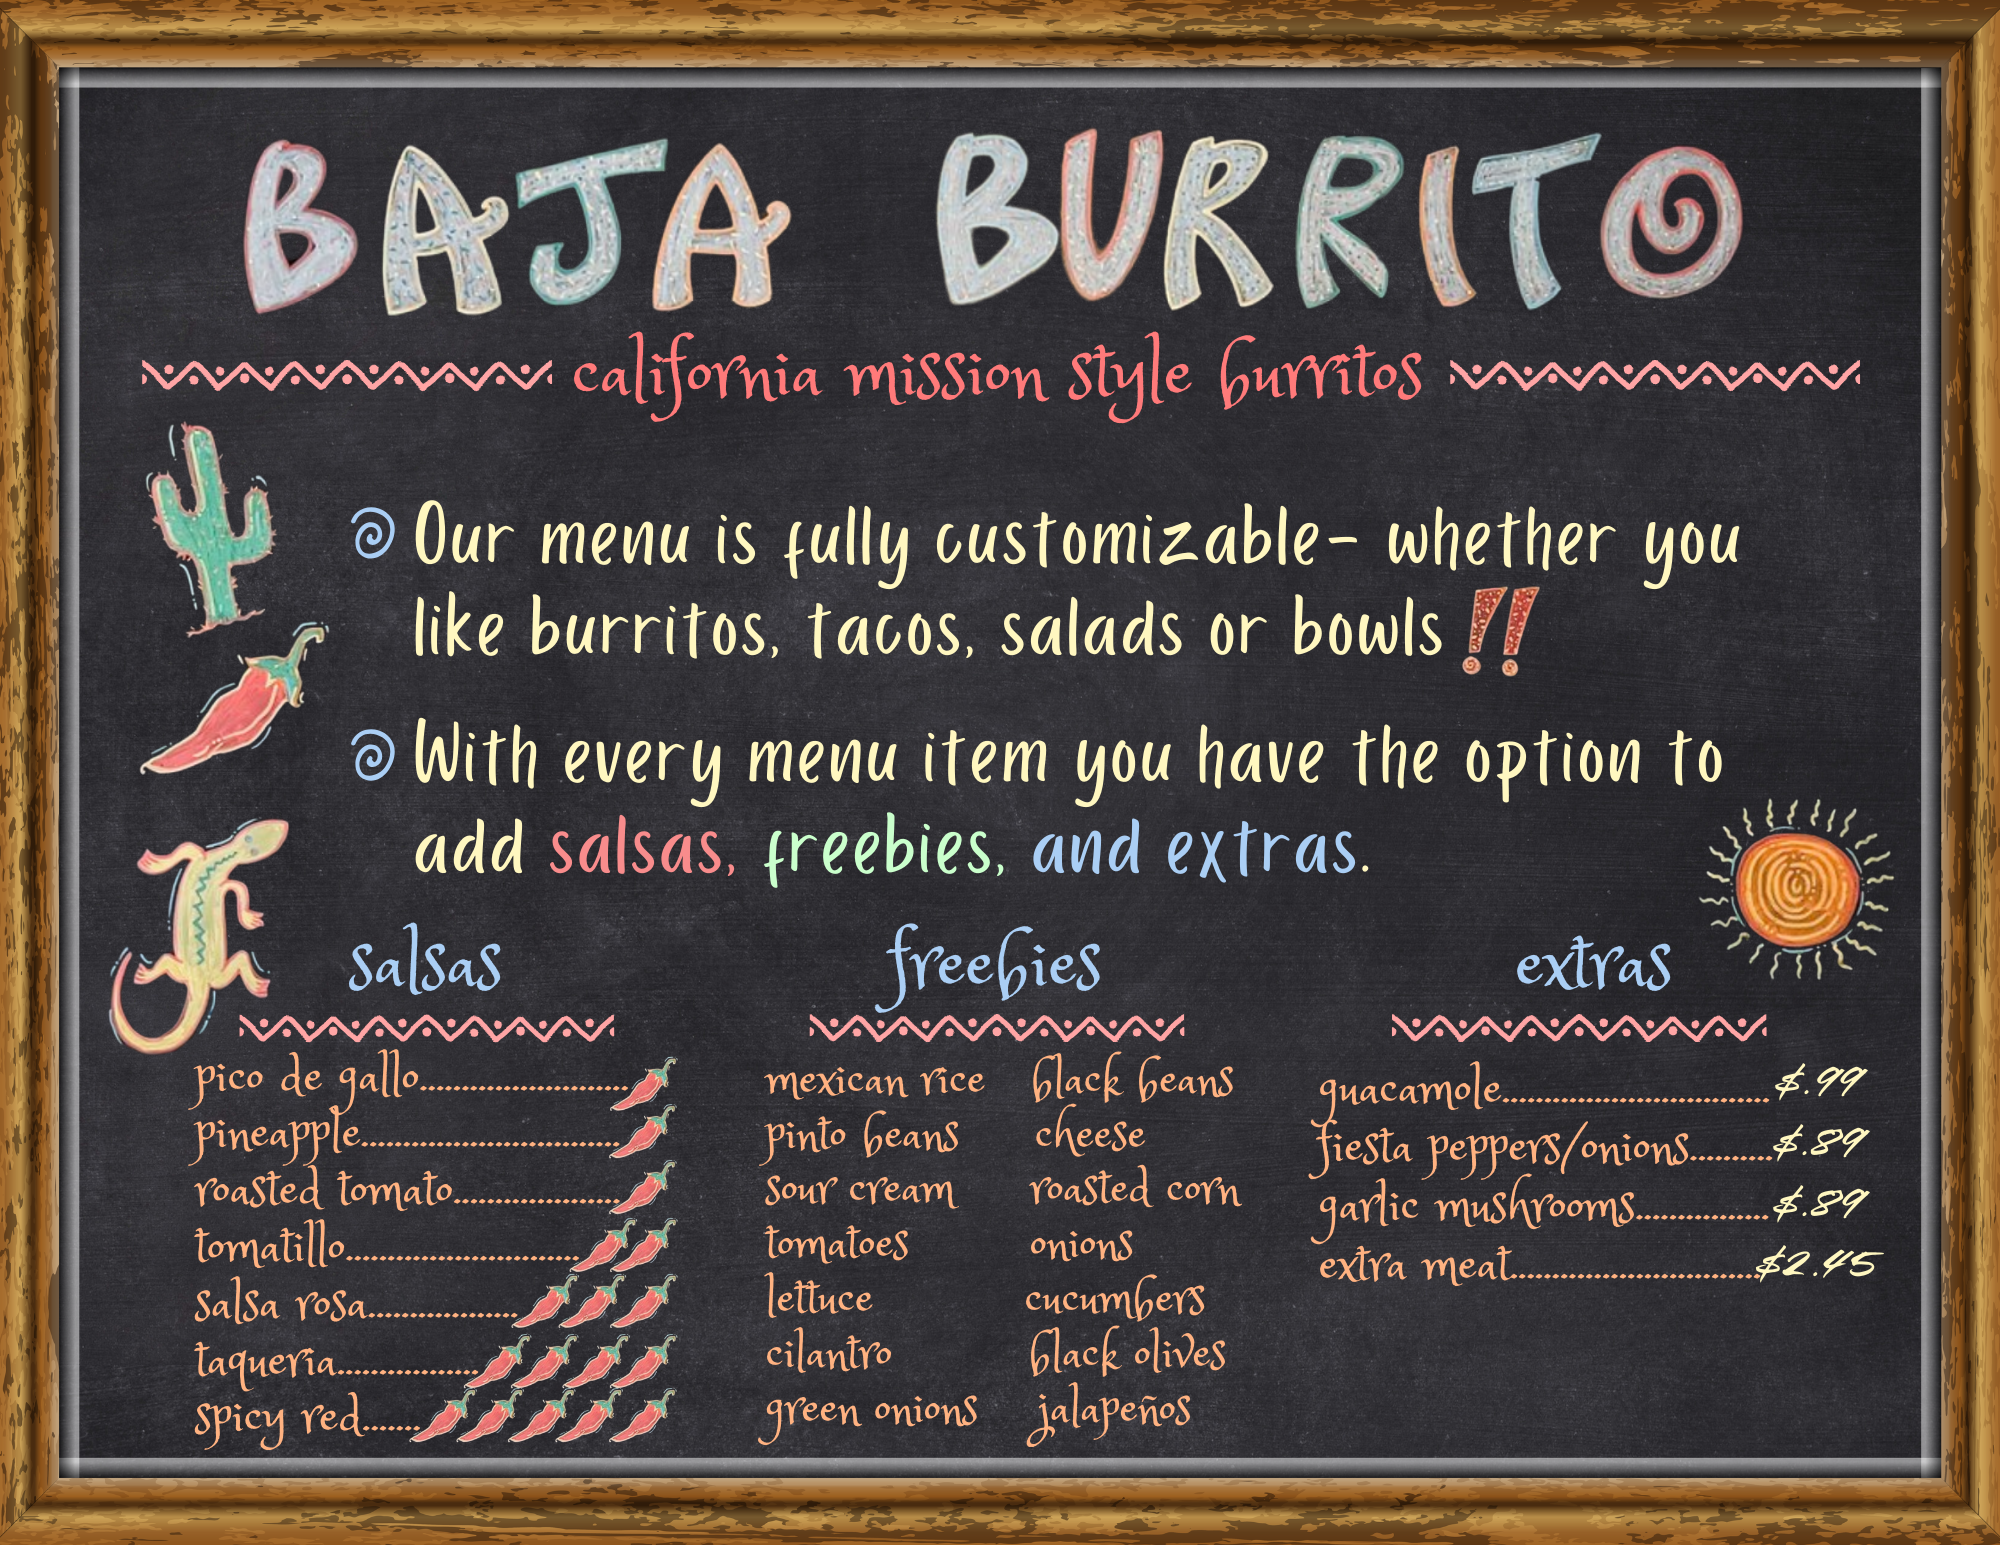 BAJA BURRITO
california mission style burritos
Our menu is fully customizable- whether you
like burritos, tacos, salads or bowls!!
With every menu item you have the option to
add salsas, freebies, and extras.
salsas
pico de gallo
pineapple
roasted tomato
tomatillo
salsa rosa
taqueria
spicy red
freebies
mexican rice black beans
pinto beans cheese
sour cream roasted corn
tomatoes onions
lettuce cucumbers
cilantro black olives
green onions jalapeños
extras
guacamole $.99
fiesta peppers/onions $.89
garlic mushrooms $.89
extra meat $2.45